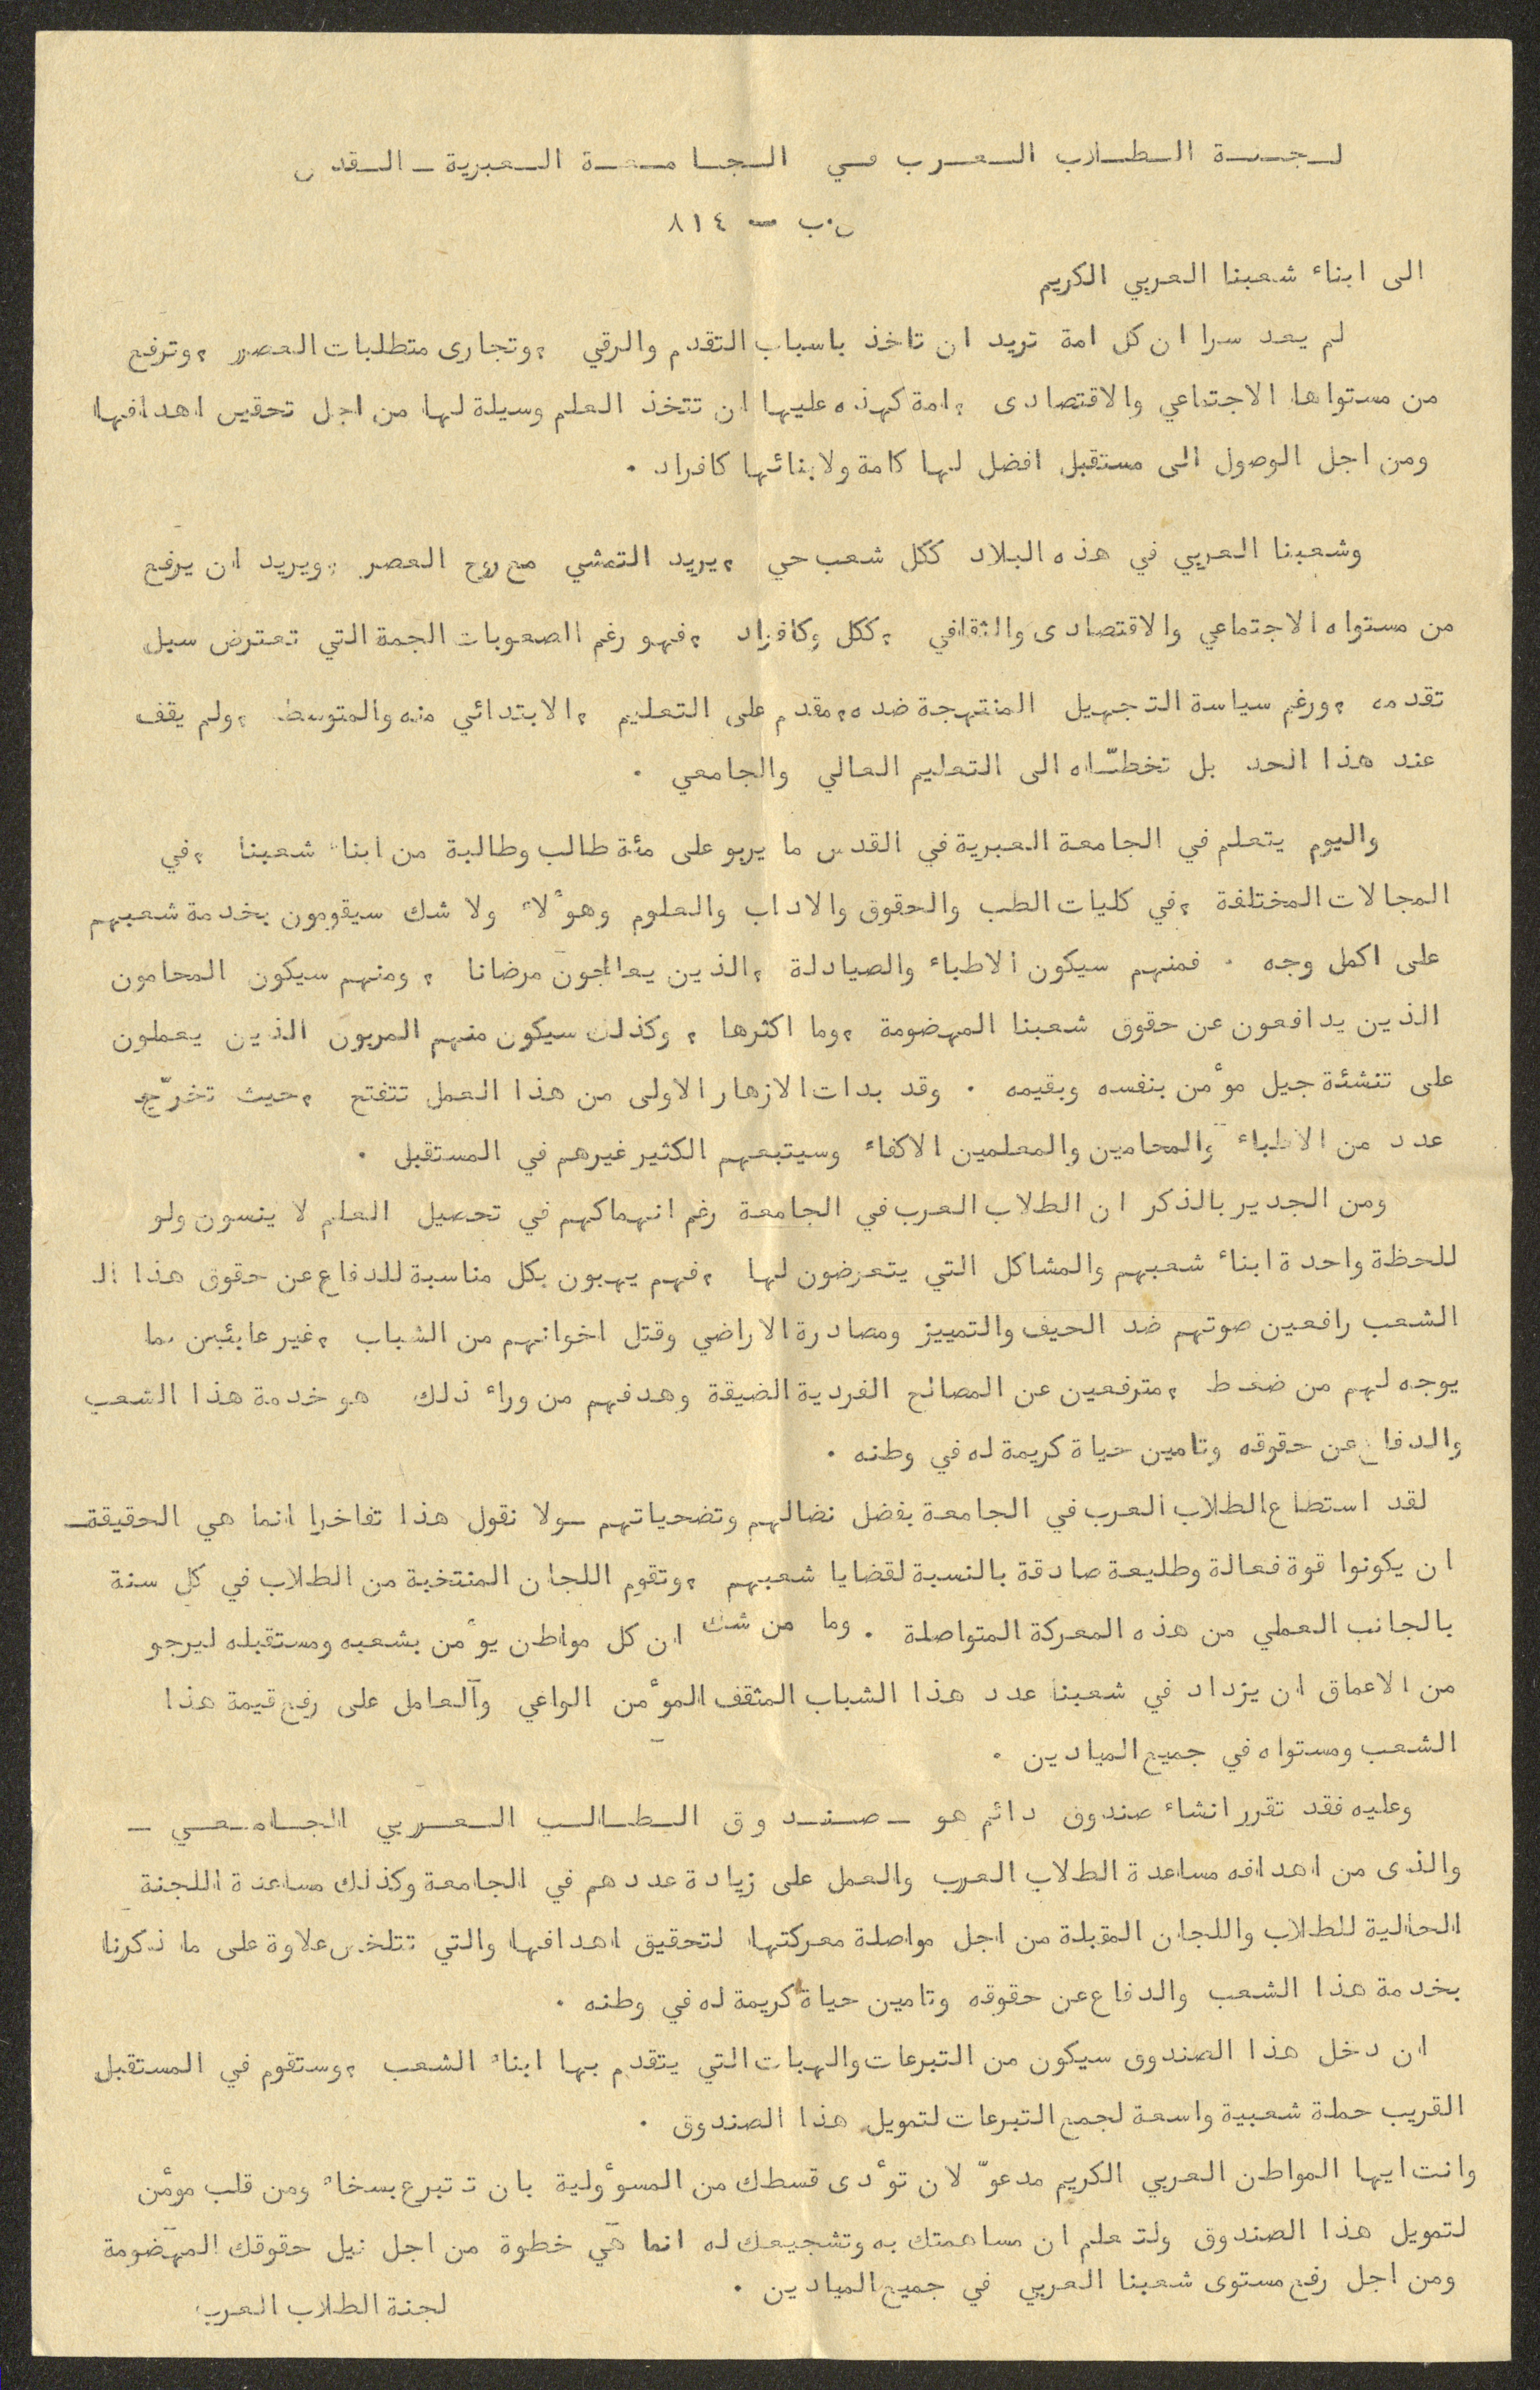 لجنة الطلاب العرب في الجامعة العبرية - القدس
ص.ب - ٨١٤
الى ابناء شعبنا العربي الكريم
لم يعد سرا ان كل امة تريد ان تاخذ باسباب التقدم والرقي ،وتجارى متطلبات العصر ،وترفع
من مستواها الاجتماعي والاقتصادى ،امة كهذه عليها ان تتخذ العلم وسيلة لها من اجل تحقيق اهدافها
ومن اجل الوصول الى مستقبل افضل لها كامة ولابنائها كافراد .
وشعبنا العربي في هذه البلاد ككل شعب حي ،يريد التمشي مع روح العصر ،ويريد ان يرفع
من مستواه الاجتماعي والاقتصادى والثقافي ،ككل وكافراد ،فهو رغم الصعوبات الجمة التي تعترض سبل
تقدمه ،ورغم سياسة التجهيل المنتهجة ضده،مقدم على التعليم ،الابتدائي منه والمتوسط ،ولم يقف
عند هذا الحد بل تخطّاه الى التعليم العالي والجامعي .
واليوم يتعلم في الجامعة العبرية في القدس ما يربو على مئة طالب وطالبة من ابناء شعبنا ،في
المجالات المختلفة ،في كليات الطب والحقوق والاداب والعلوم وهوٴلاء ولا شك سيقومون بخدمة شعبهم
على اكمل وجه . فمنهم سيكون الاطباء والصيادلة ،الذين يعالجون مرضانا ، ومنهم سيكون المحامون
الذين يدافعون عن حقوق شعبنا المهضومة ،وما اكثرها ، وكذلك سيكون منهم المربون الذين يعملون
على تنشئة جيل موٴمن بنفسه وبقيمه . وقد بدات الازهار الاولى من هذا العمل تتفتح ،حيث تخرّج
عدد من الاطباء والمحامين والمعلمين الاكفاء وسيتبعهم الكثير غيرهم في المستقبل .
ومن الجدير بالذكر ان الطلاب العرب في الجامعة رغم انهماكهم في تحصيل العلم لا ينسون ولو
للحظة واحدة ابناء شعبهم والمشاكل التي يتعرضون لها ،فهم يهبون بكل مناسبة للدفاع عن حقوق هذا ال
الشعب رافعين صوتهم ضد الحيف والتمييز ومصادرة الاراضي وقتل اخوانهم من الشباب ،غير عابئين بما
يوجه لهم من ضغط ،مترفعين عن المصالح الفردية الضيقة وهدفهم من وراء ذلك هو خدمة هذا الشعب
والدفاع عن حقوقه وتامين حياة كريمة له في وطنه .
لقد استطاع الطلاب العرب في الجامعة بفضل نضالهم وتضحياتهم -ولا نقول هذا تفاخرا انما هي الحقيقة-
ان يكونوا قوة فعالة وطليعة صادقة بالنسبة لقضايا شعبهم ،وتقوم اللجان المنتخبة من الطلاب في كل سنة
بالجانب العملي من هذه المعركة المتواصلة . وما من شك ان كل مواطن يوٴمن بشعبه ومستقبله ليرجو
من الاعماق ان يزداد في شعبنا عدد هذا الشباب المثقف الموٴمن الواعي والعامل على رفع قيمة هذا
الشعب ومستواه في جميع الميادين .
وعليه فقد تقرر انشاء صندوق دائم هو - صندوق الطالب العربي الجامعي -
والذى من اهدافه مساعدة الطلاب العرب والعمل على زيادة عددهم في الجامعة وكذلك مساعدة اللجنة
الحالية للطلاب واللجان المقبلة من اجل مواصلة معركتها لتحقيق اهدافها والتي تتلخص علاوة على ما ذكرنا
بخدمة هذا الشعب والدفاع عن حقوقه وتامين حياة كريمة له في وطنه .
ان دخل هذا الصندوق سيكون من التبرعات والهبات التي يتقدم بها ابناء الشعب ،وستقوم في المستقبل
القريب حملة شعبية واسعة لجمع التبرعات لتمويل هذا الصندوق .
وانت ايها المواطن العربي الكريم مدعوّ لان توٴدى قسطك من المسوٴولية بان تتبرع بسخاء ومن قلب موٴمن
لتمويل هذا الصندوق ولتعلم ان مساهمتك به وتشجيعك له انما هي خطوة من اجل نيل حقوقك المهضومة
ومن اجل رفع مستوى شعبنا العربي في جميع الميادين .
لجنة الطلاب العرب